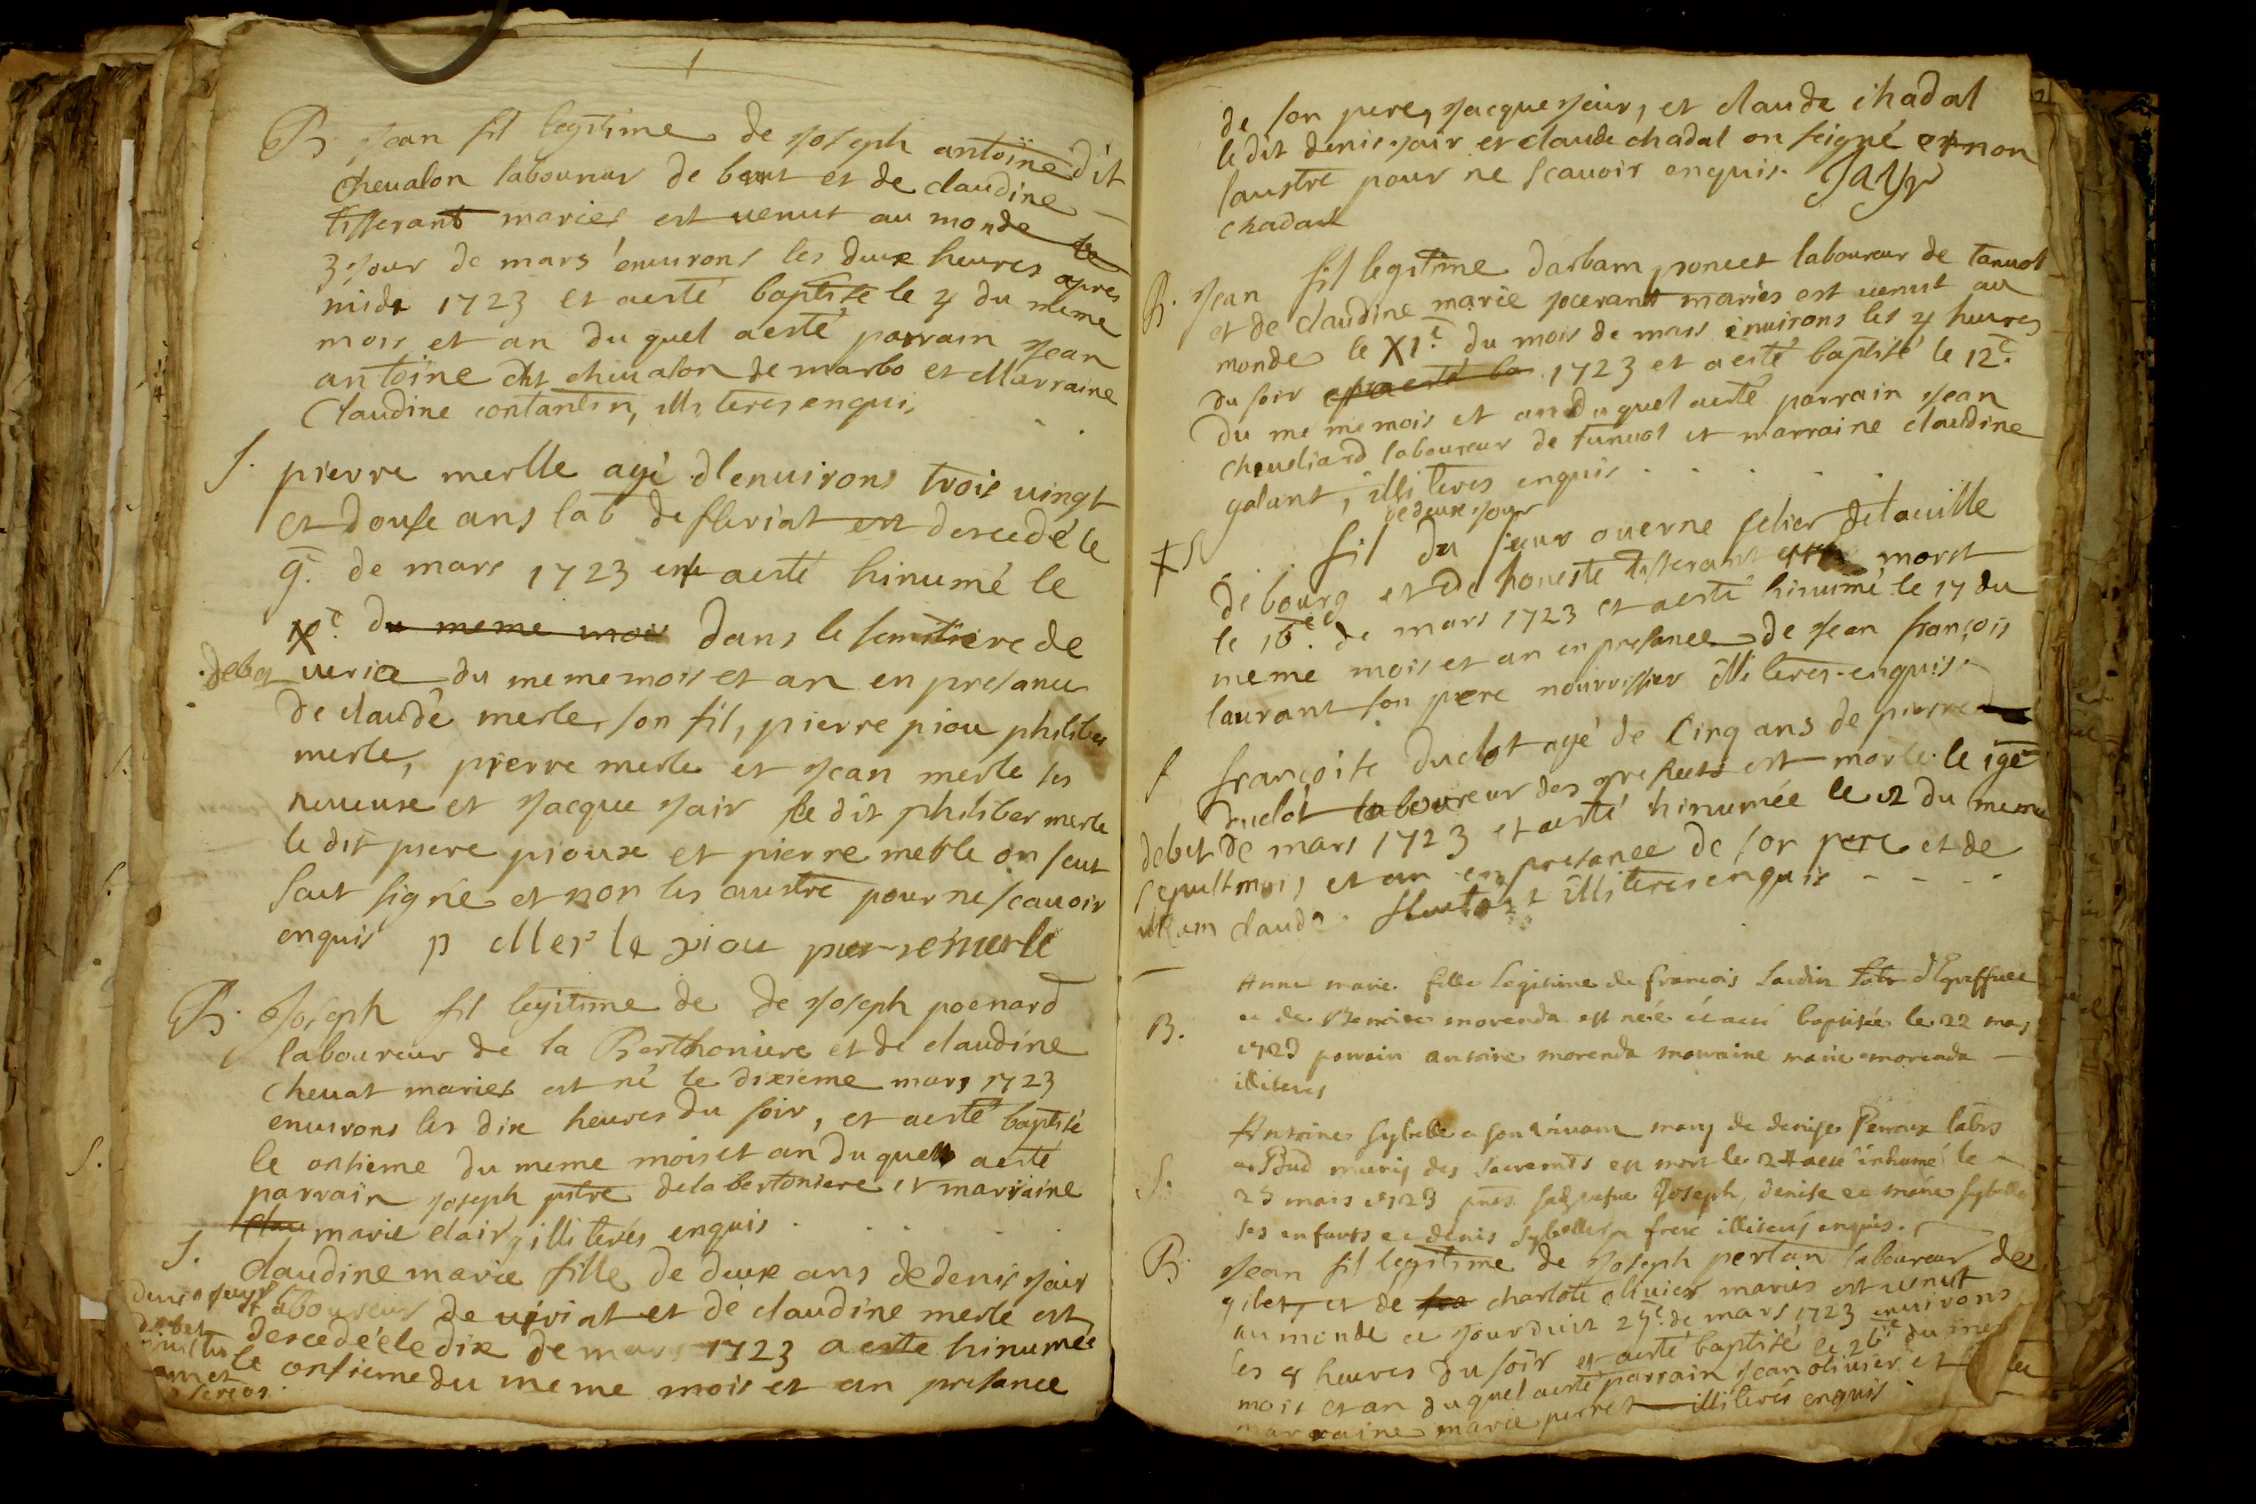 B. Jean fil legitime de Joseph antoine dit
chevalon laboureur de bout et de claudine
tisserant maries est venut au monde le
3 jour de mars environs les deux heures apres
midi 1723 et aesté baptisé le 4 du meme
mois et an du quel aesté parrain Jean
antoine dit chevalon de marbo et Marraine
Claudine contantin, illiteres enquis
S. pierre merlle agé d'environs trois vingt
et douse ans lab de fleriat est descedé le
9. de mars 1723 et aesté hinumé le
Xe. du meme mois dans le semitiere de
debet veria du meme mois et an en presance
de claude merle, son fil, pierre piou philiber
merle, pierre merle et Jean merle ses
neveux et Jacque Jair le dit philiber merle
le dit piere pioux et pierre merle on seut
saut signé et non les austre pour ne scavoir
enquis p Merle piou pierre merle
B. Joseph fil legitime de de Joseph poenard
laboureur de la Berthoniere et de claudine
chevat maries est né le dixieme mars 1723
environs les dix heures du soir, et aesté baptisé
le onsieme du meme mois et an du quel aesté
parrain Joseph de la bertoniere et marraine
clau marie clair, illiterés enquis
S. Claudine marie fille de deux ans de denis Jair
laboureur de vériat et de claudine merle est
debet descedée le dix de mars 1723 a esté hinumée
le onsieme du meme mois et an presance
de son pere, Jacque Jair, et claude chadal
le dit denis Jair et claude chadal on seigné et non
laustre pour ne scavoir enquis. Jayr
chadal
B. Jean fil legitime darbam poncet laboureur de tanvol
et de claudine marie jocerant maries est venut au
monde le XIe. du mois de mars environs les 4 heures
du soir et a esté ba 1723 et aesté baptisé le 12e.
du meme mois et an du quel aesté parrain Jean
cheveliard laboureur de tanvol et marraine claudine
galant, illiteres enquis
de deux jour
S fil du sieur overne selier de la ville
de bourg et de honeste tisserant est morst
le 16e. de mars 1723 et aesté hinumé le 17 du
meme mois et an en presance de Jean françois
laurant son pere nourrissier illiteres enquis
S françoise duclot agé de cinq ans de pierre
duclot laboureur des greffets est morte le 19e
debet de mars 1723 et aesté hinumée le du meme
sepult mois, et an en presance de son pere et de
claude illiteres enquis
Anne marie fille legitime de françois Jardin labr d'
B. et de Benoite morenda est née et a eté baptisée le 22 mars
1723 parrain antoine morenda marraine marie morenda
illiteres
Antoine Sybelle a son vivant mary de denise Perroux labrs
a Bud muny des sacremts est mort le 24 a eté inhumé le
S. 25 mars 1723 pnts sa vefue Joseph, denise et marie Sybelle
ses enfants et denis Sybelle frere illiterés enquis.
B. Jean fil legitime de Joseph perlan laboureur des
gilet, et de charlote olivier maries est venut
au monde ce jourduit 25e. de mars 1723 environs
les 8 heures du soir et aesté baptisé le 26e du mes
mois et an du quel aesté parrain Jean olivier et
marraine marie perret illiterés enquis